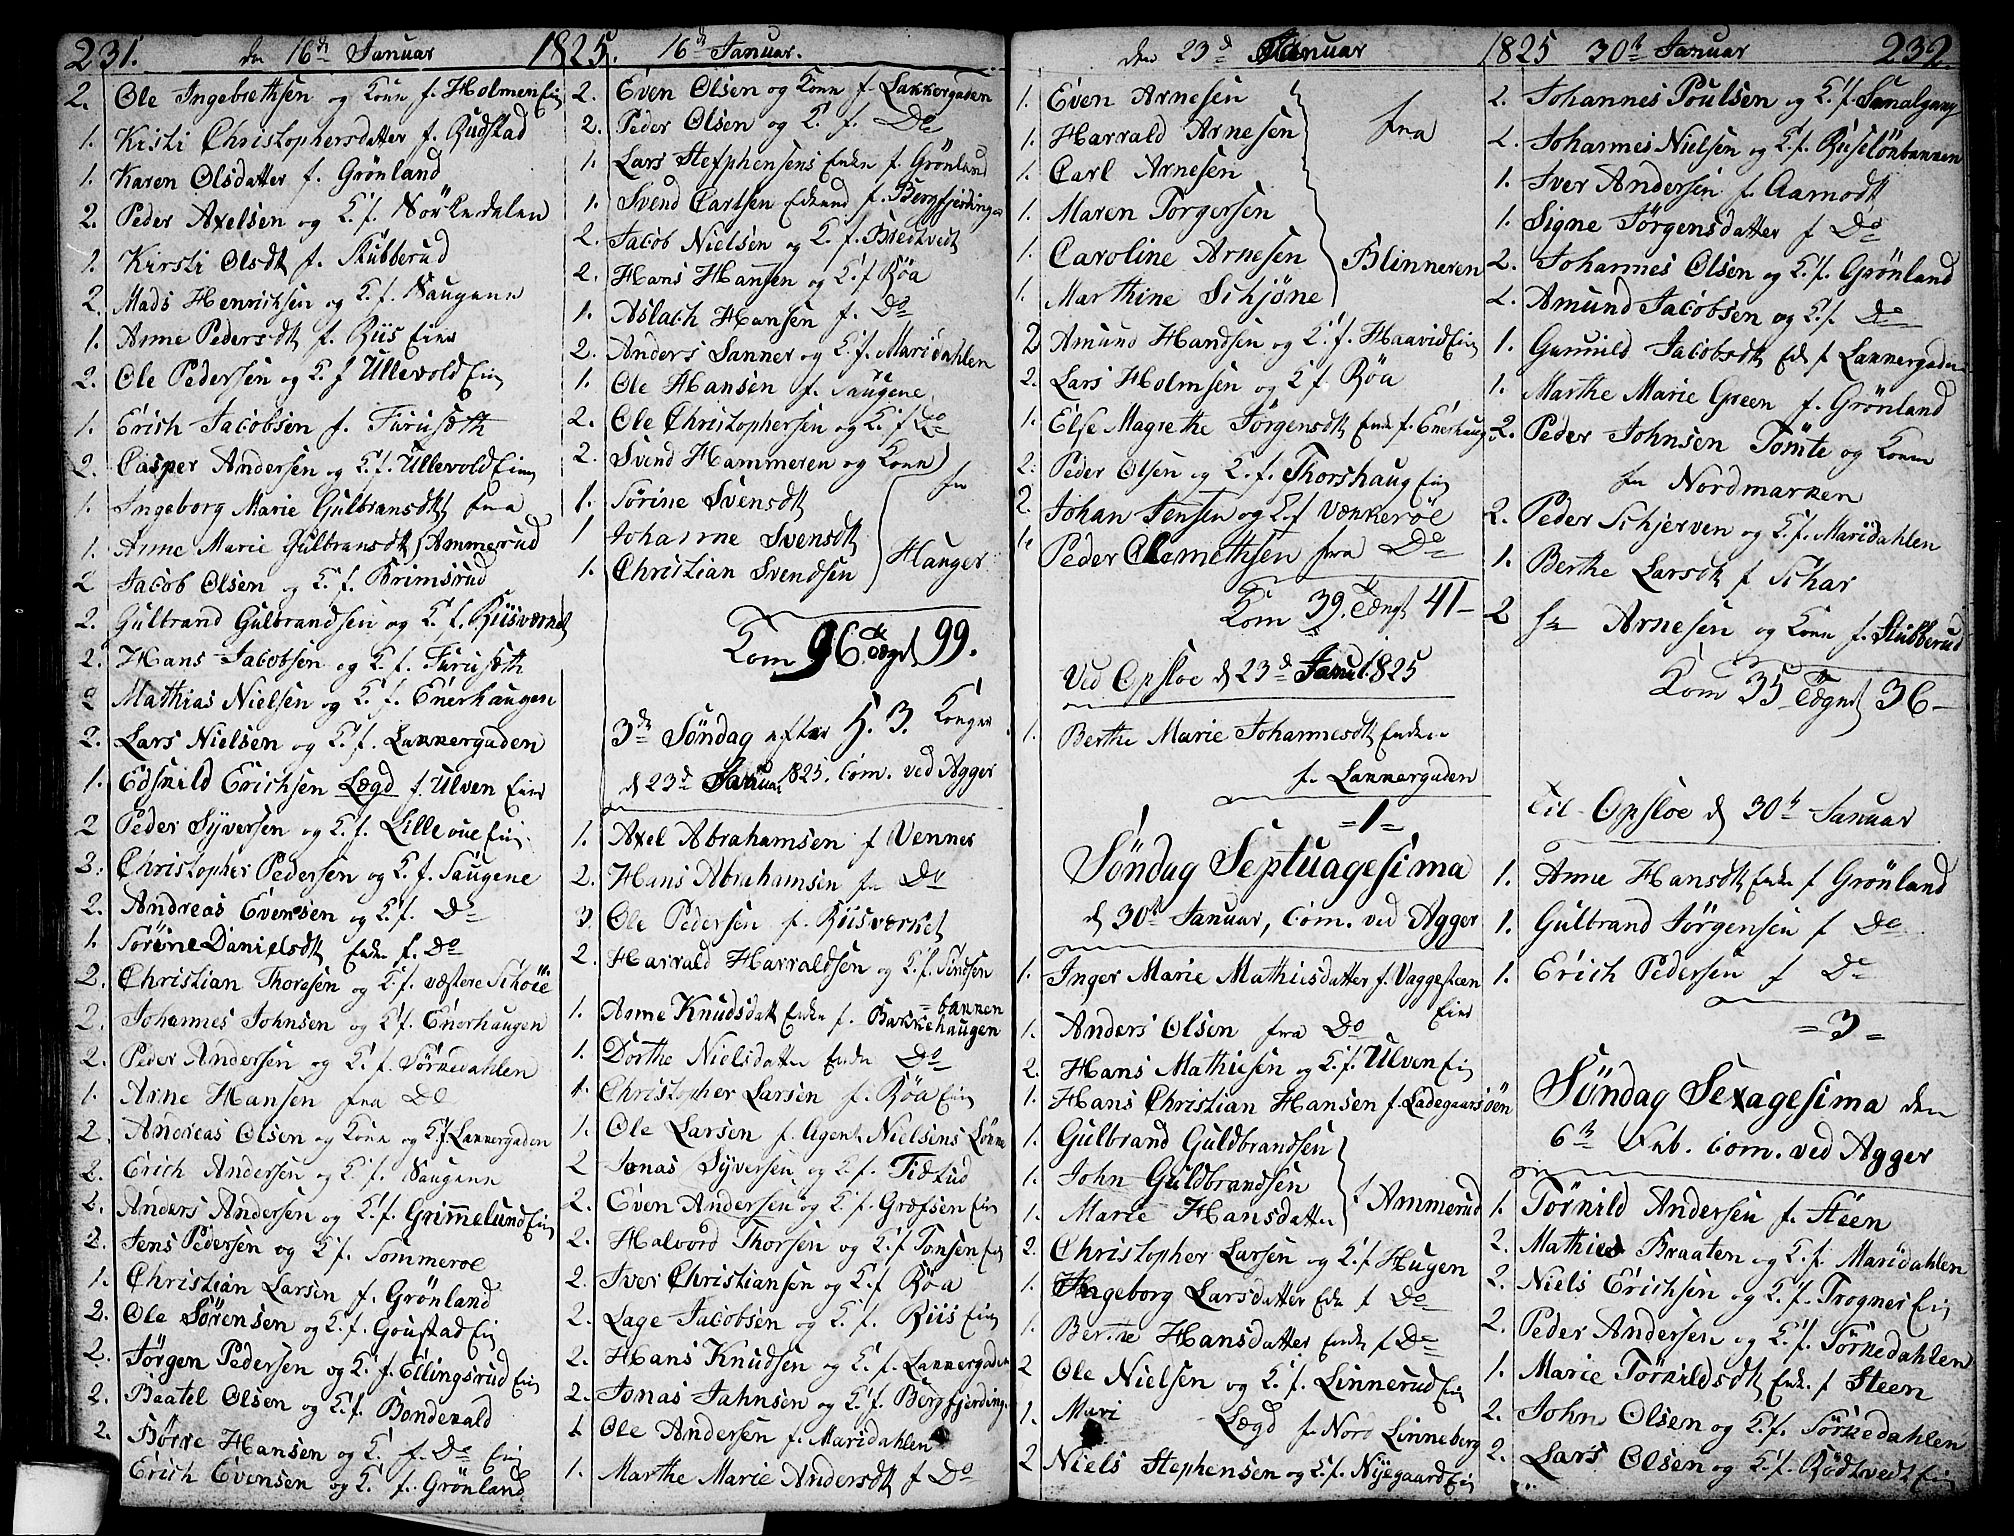 231. den 16de Januar 1825.
2. Ole Ingebrethsen og Kone f. Holmen Eie
1. Kirsti Christophersdatter f. Rudstad
1. Karen Olsdatter f. Grönland
2. Peder Axelsen og K. f. Sörkedalen
1. Kirsti Olsdt f. Stubberud
2. Mads Henrichsen og K. f. Saugene
1. Anne Pedersdt f. Riis Eier
2. Ole Pedersen og K. f Ullevold Eie
1. Erich Jacobsen f. Furuseth
2. Casper Andersen og K. f. Ullevold Eie
1. Ingeborg Marie Gulbransdt fra
1. Anne Marie Gulbransdt Ammerud
2 Jacob Olsen og K. f. Brimsrud
2. Gulbrand Gulbrandsen og K. f. Riisværket
2. Hans Jacobsen og K. f. Furuseth
2 Mathias Nielsen og K. f. Enerhaugen
2. Lars Nielsen og K. f. Lakkergaden
1. Edsvild Erichsen Lægd f. Ulven Eier
2 Peder Syversen og K. f. Lilleoue Eie
3. Christopher Pedersen og K. f. Saugene
2. Andreas Evensen og K. f. Do
1. Sörine Danielsdt Enke f. Do
2. Christian Thoresen og K. f. væstere Schöie
2. Johannes Johnsen og K. f. Enerhaugen
2. Peder Andersen og K. f. Sörkedahlen
1. Arne Hansen fra Do
2. Andreas Olsen og Kone og K f Lakkergaden
2. Erich Andersen og K. f. Saugene
2. Anders Andersen og K. f. Grimmelund Eie
2. Jens Pedersen og K f. Sommeroe
1. Christian Larsen f. Grönland
2. Ole Sörensen og K. f. Goustad Eie
2. Jörgen Pedersen og K. f. Ellingsrud Eie
2. Baatel Olsen og K. f. Bondevald
2. Börre Hansen og K. f. Do Eie
Erich Evensen og K. f. Grönland
16de Januar.
2. Even Olsen og Kone f. Lakkergaden
2. Peder Olsen og K. f. Do
1. Lars Stefphensens Enke f. Grönland
1. Svend Carlsen Enkemd f. Bergfjerdingen
2. Jacob Nielsen og K. f. Bredtvedt
2. Hans Hansen og K. f Röa
1. Aslach Hansen f. Do
2. Anders Sanner og K. f. Maridahlen
1. Ole Hansen f. Saugene
2. Ole Christophersen og K. f Do
2. Svend Hammeren og Kone
1. Sörine Svensdt fra
1 Johanne Svensdt
1. Christian Svendsen Hauger
Kom 96. tægnt 99.
3de Söndag efter H. 3. Konger
d 23de Januar 1825. Com. ved Agger
1. Axel Abrahamsen f Vennes
2. Hans Abrahamsen fra Do
3. Ole Pedersen f. Riisværket
2. Harrald Harraldsen og K. f. Sinsen
1. Anne Knudsdatt Enke f. Bakkehaugen = bakken
1. Dorthe Nielsdatter Enke Do
1. Christopher Larsen f. Röa Eie
1. Ole Larsen f. Agent Nielsens Lökke
2 Jonas Syversen og K. f. Tidtud
2. Even Andersen og K. f. Grefsen Eie
2. Halvord Thorsen og K. f Tonsen Eie
2. Iver Christiansen og K. f Röa
2. Lage Jacobsen og K. f. Riis Eie
2. Hans Knudsen og K. f. Lakkergaden
2. Jonas Jahnsen og K. f. Bergfjerding
1 Ole Andersen f. Maridahlen
1. Marthe Marie Andersdt f Do
den 23de Januar 1825
1. Even Arnesen
1. Harrald Arnesen fra
1. Carl Arnesen
1. Maren Torgersen
1. Caroline Arnesen Blinneren
1. Marthine Schjöne
2 Amund Handsen og K. f. Haavid Eie
2. Lars Holmsen og K f Röa
1. Else Magrethe Jörgensdt Enke f. Enerhaug
2. Peder Olsen og K. f. Thorshaug Eie
2. Johan Jensen og K. f Vækkeröe
1. Peder Clemethsen fra Do
Kom 39. tægnt 41-
Ved Opsloe d 23de Janu 1825
1. Berthe Marie Johannesdt Enke
f. Lakkergaden
=1=
Söndag Septuagesima
d 30te Januar, Com. ved Agger
1. Inger Marie Mathiesdatter f. Vaggesteen Eier
1. Anders Olsen fra Do
2. Hans Mathiesen og K. f. Ulven Eie
1. Hans Christian Hansen f. Ladegaarsöen
1. Gulbrand Guldbrandsen
1. John Guldbrandsen f Ammerud
1. Marie Hansdatter
2. Christopher Larsen og K. f Hugen
1. Ingeborg Larsdatter Enke f Do
1. Berthe Hansdatter Enke f Do
2 Ole Nielsen og K. f. Linnerud Eie
1. Mari Lægd f. Nord Linneberg
2 Niels Stephensen og K. f. Nyegaard Eie
30te Januar 232.
2. Johannes Poulsen og K. f.
2. Johannes Nielsen og K. f. Riselöubakken
1. Iver Andersen f. Aamodt
1. Signe Jörgensdatter f Do
2. Johannes Olsen og K. f. Grönland
2. Amund Jacobsen og K. f. Do
1. Gunnild Jacobsdt Enke f Lakkergaden
1. Marthe Marie Green f. Grönland
2. Peder Johnsen Tömte og Kone
fra Nordmarken
2. Peder Schjerven og K. f. Maridahlen
1. Berthe Larsdt f Schar
2 Hr Arnesen og Kone f. Stubberud
Kom 35 tægnt 36-
Til Opsloe d 30te Januar
1. Anne Hansdt Enke f Grönland
1. Gulbrand Jörgensen f Do
1. Erich Pedersen f Do
=3=
Söndag Sexagesima den
6te Feb. Com. ved Agger
1. Törkild Andersen f. Steen
2. Mathies Braaten og K. f. Maridahlen
2. Niels Erichsen og K. f. Trogner Eie
2. Peder Andersen og K. f. Sörkedahlen
1. Marie Törkildsdt Enke f Steen
2. John Olsen og K. f. Sörkedahlen
2. Lars Olsen og K. f. Rödtvedt Eie